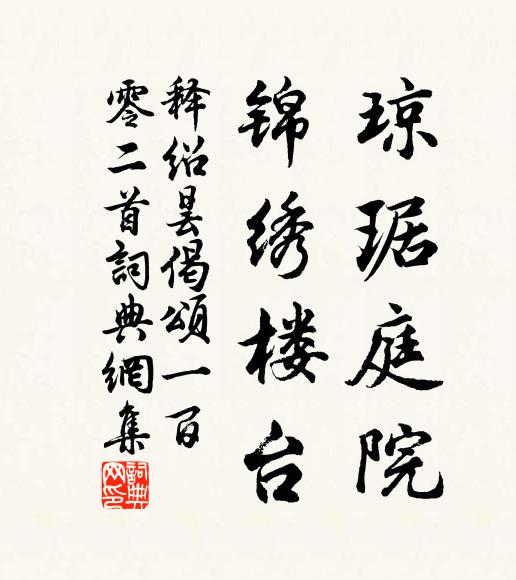 琼琚庭院
锦绣楼台
释绍昙偈颂一百
零二首詞典網集
詞典网印